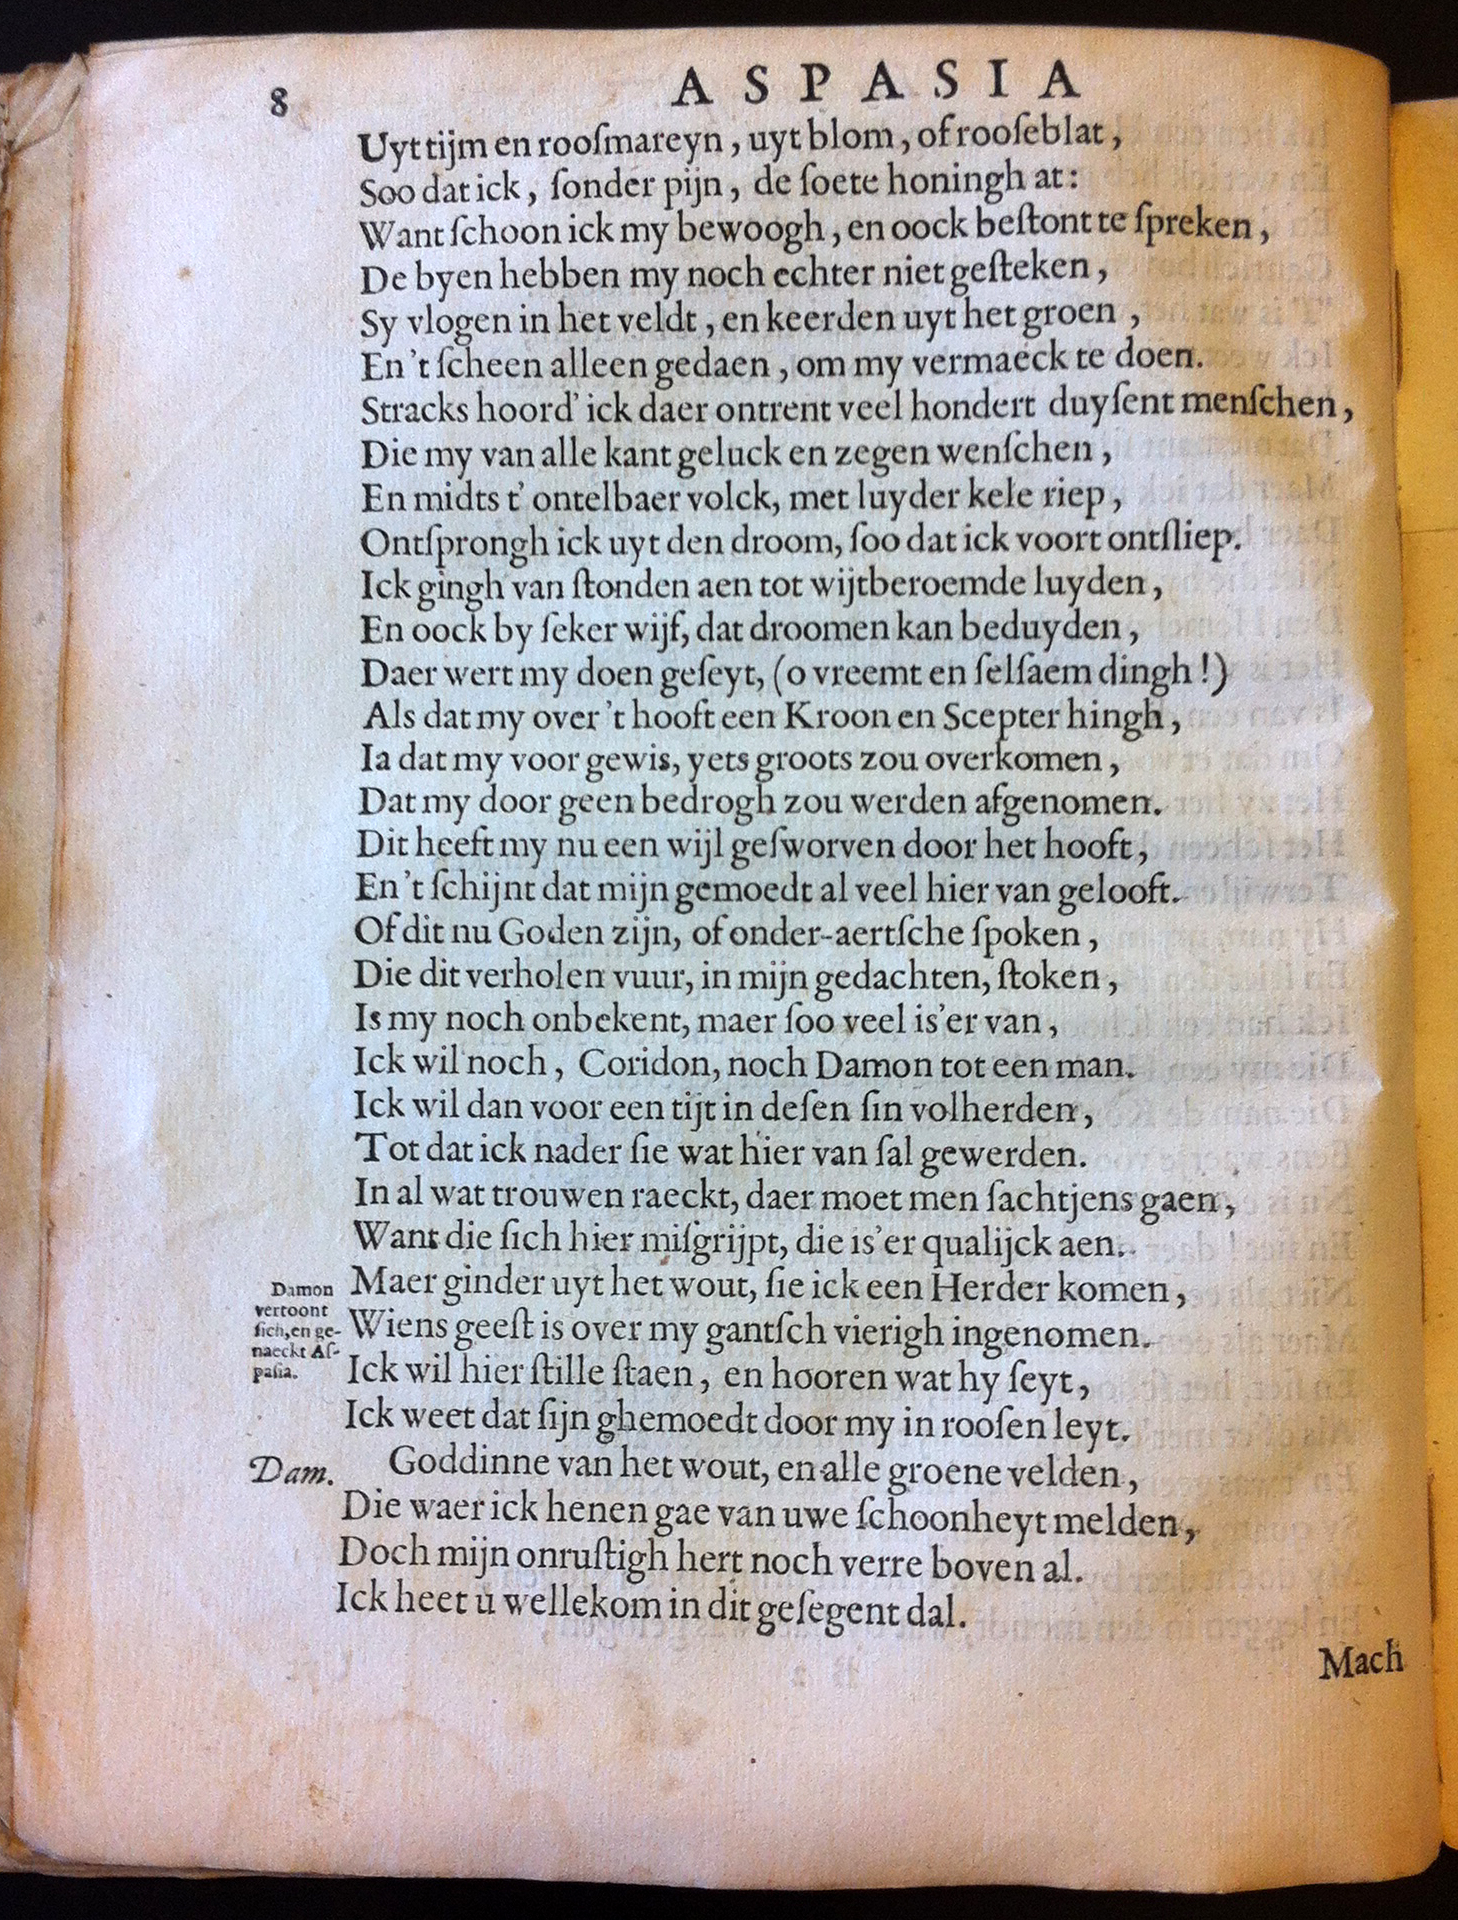 8
ASPASIA
Uyt tijm en rooſmareyn, uyt blom, of rooſeblat,
Soo dat ick, ſonder pijn, de ſoete honingh at:
Want ſchoon ick my bewoogh, en oock beſtont te ſpreken,
De byen hebben my noch echter niet geſteken,
Sy vlogen in het veldt, en keerden uyt het groen,
En 't ſcheen alleen gedaen, om my vermaeck te doen.
Stracks hoord' ick daer ontrent veel hondert duyſent menſchen,
Die my van alle kant geluck en zegen wenſchen,
En midts t' ontelbaer volck, met luyder kele riep,
Ontſprongh ick uyt den droom, ſoo dat ick voort ontſliep.
Ick gingh van ſtonden aen tot wijtberoemde luyden,
En oock by ſeker wijf, dat droomen kan beduyden,
Daer wert my doen geſeyt, (o vreemt en ſelſaem dingh!)
Als dat my over 't hooft een Kroon en Scepter hingh,
Ia dat my voor gewis, yets groots zou overkomen,
Dat my door geen bedrogh zou werden afgenomen.
Dit heeft my nu een wijl geſworven door het hooft,
En 't ſchijnt dat mijn gemoedt al veel hier van gelooft.
Of dit nu Goden zijn, of onder-aertſche ſpoken,
Die dit verholen vuur, in mijn gedachten, ſtoken,
Is my noch onbekent, maer ſoo veel is'er van,
Ick wil noch, Coridon, noch Damon tot een man.
Ick wil dan voor een tijt in deſen ſin volherden,
Tot dat ick nader ſie wat hier van ſal gewerden.
In al wat trouwen raeckt, daer moet men ſachtjens gaen,
Want die ſich hier miſgrijpt, die is'er qualijck aen.
Maer ginder uyt het wout, ſie ick een Herder komen,
Wiens geeſt is over my gantſch vierigh ingenomen.
Ick wil hier ſtille ſtaen, en hooren wat hy ſeyt,
Ick weet dat ſijn ghemoedt door my in rooſen leyt.
Damon
vertoont
ſich, en ge-
naeckt Aſ-
paſia.
Dam. Goddinne van het wout, en alle groene velden,
Die waer ick henen gae van uwe ſchoonheyt melden,
Doch mijn onruſtigh hert noch verre boven al.
Ick heet u wellekom in dit geſegent dal.
Mach